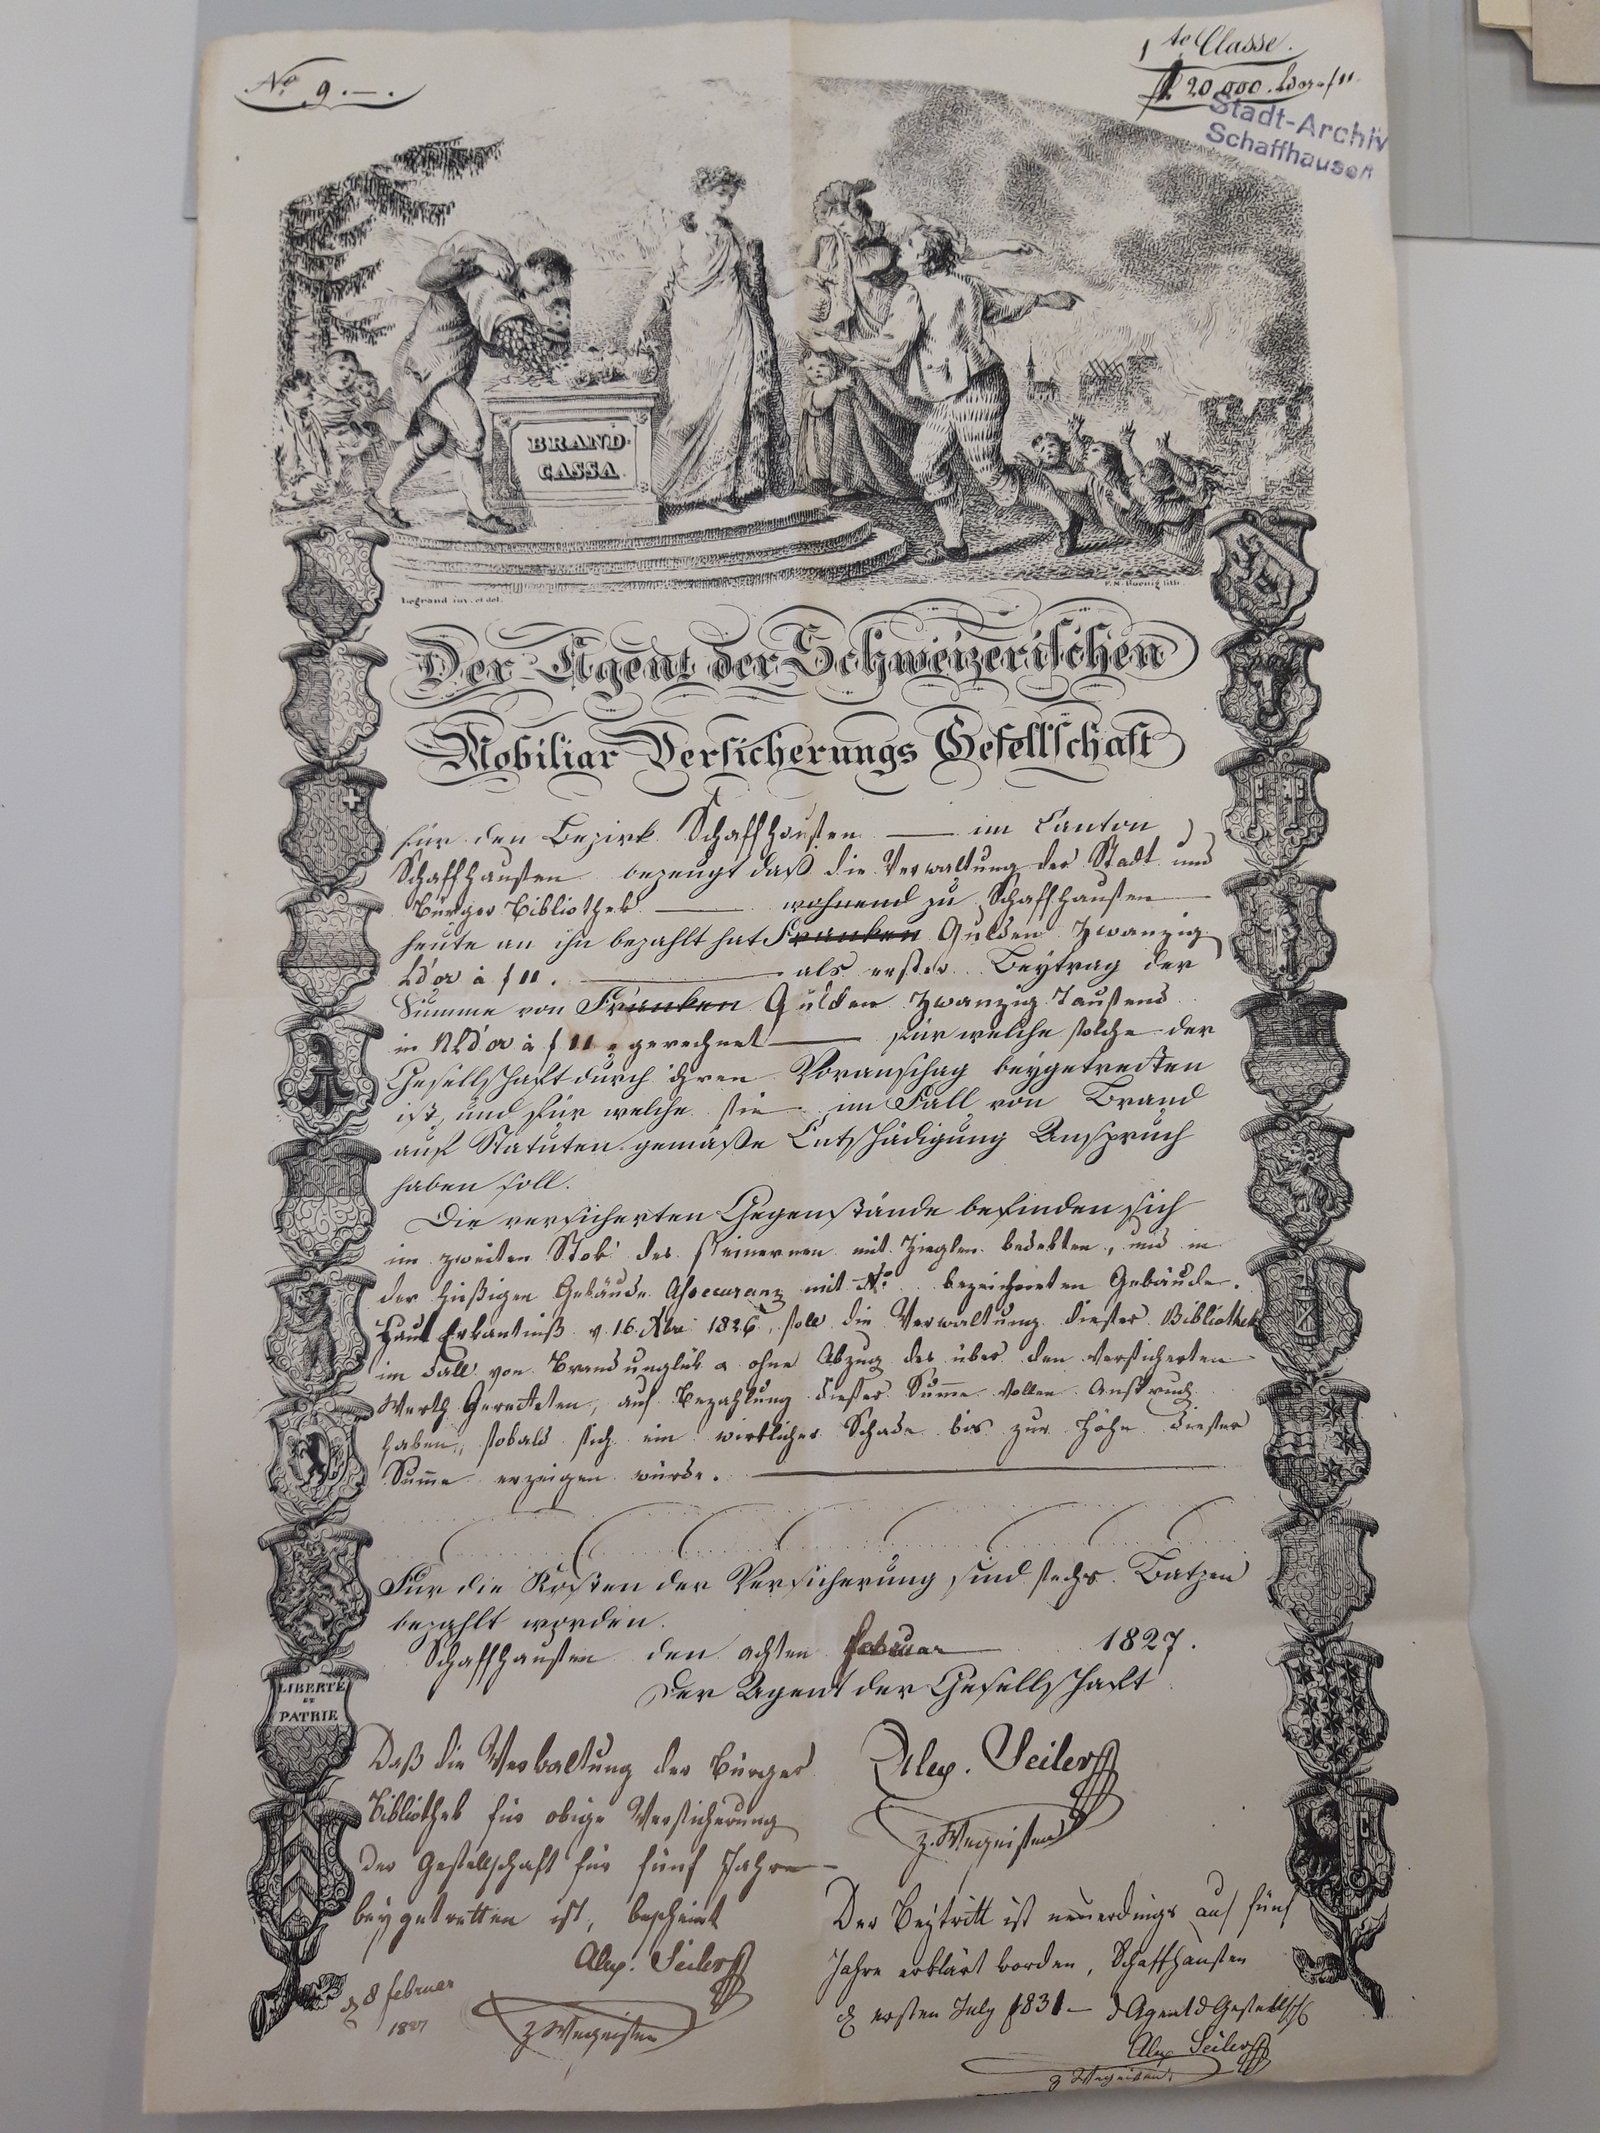 No. 9.—.
1te Classe.
20,000. Ldor f 11.
Stadt-Archiv
Schaffhausen
BRAND-
CASSA
Legrand inv. et del.
F. N. Koenig lith.
Der Agent der Schweizerischen
Mobiliar Versicherungs Gesellschaft
für den Bezirk Schaffhausen — im Canton
Schaffhausen bezeugt daß die Verwaltung der Stadt und
Bürger Bibliothek — wohnend zu Schaffhausen —
heute an ihn bezahlt hat Franken Gulden Zwanzig
Ld'or à f 11. — als erster Beytrag der
Summe von Franken Gulden Zwanzig Tausend
in NLd'or à f 11 gerechnet — für welche solche der
Gesellschaft durch ihren Voranschag beygetretten
ist, und für welche sie im Fall von Brand
auf Statuten gemäße Entschädigung Anspruch
haben soll.
Die versicherten Gegenstände befinden sich
im zweiten Stok des steinernen mit Zieglen bedekten, und in
der hießigen Gebäude Assecuranz mit No. bezeichneten Gebäude.
Laut Erkantniß v. 16. Xbr 1826, soll die Verwaltung dieser Bibliothek
im Fall von Brandunglük ohne Abzug des über den versicherten
Werth Geretteten, auf Bezahlung dieser Summe vollen Anspruch
haben, sobald sich ein wirklicher Schade bis zur Höhe dieser
Summe erzeigen würde. —
Für die Kosten der Versicherung sind sechs Batzen
bezahlt worden.
Schaffhausen den achten februar — 1827.
Der Agent der Gesellschaft
LIBERTÉ
ET
PATRIE
Alex. Seiler
z. Wegeisen
Daß die Verwaltung der Bürger
Bibliothek für obige Versicherung
der Gesellschaft für fünf Jahre —
beygetretten ist, bescheint
Alex. Seiler
z Wegeisen
d 8 februar
1827
Der Beytritt ist neuerdings auf fünf
Jahre erklärt worden, Schaffhausen
d ersten July 1831 — d Agent d Gesellsch
Alex Seiler
z Wegeisen